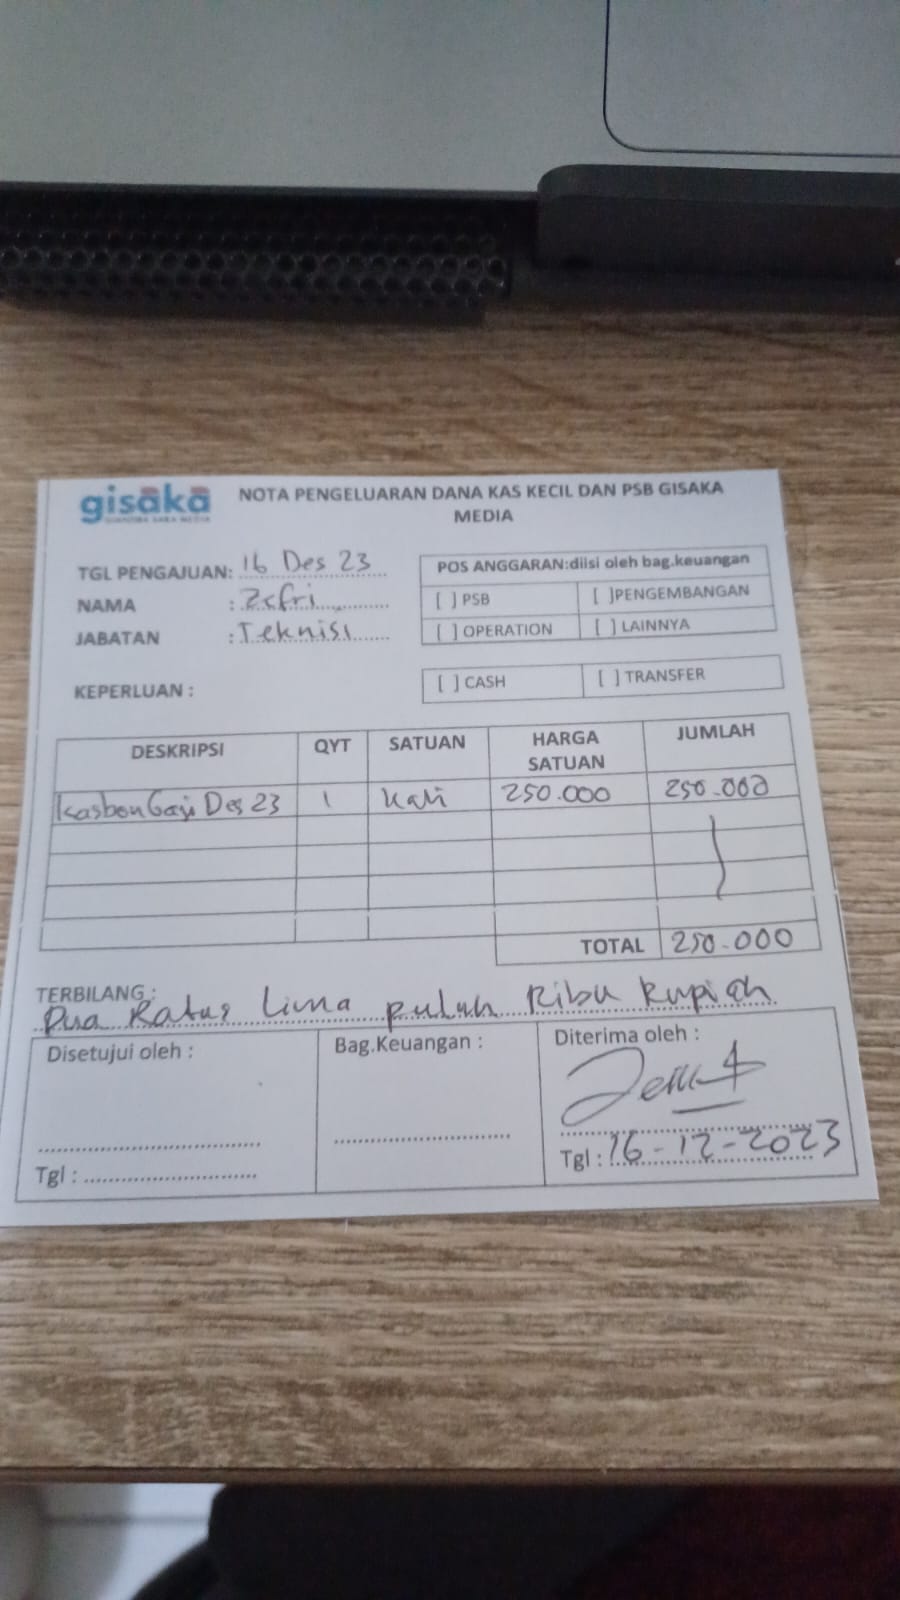 gisaka
NOTA PENGELUARAN DANA KAS KECIL DAN PSB GISAKA
MEDIA
TGL PENGAJUAN: 16 Des 23
NAMA : Zefri
JABATAN : Teknisi
KEPERLUAN :
POS ANGGARAN:diisi oleh bag.keuangan
[ ] PSB [ ]PENGEMBANGAN
[ ] OPERATION [ ] LAINNYA
[ ] CASH [ ] TRANSFER
DESKRIPSI QYT SATUAN HARGA SATUAN JUMLAH
Kasbon Gaji Des 23 1 Kali 250.000 250.000
TOTAL 250.000
TERBILANG :
Dua Ratus Lima puluh Ribu Rupiah
Disetujui oleh : Bag.Keuangan : Diterima oleh :
Tgl : Tgl : 16-12-2023